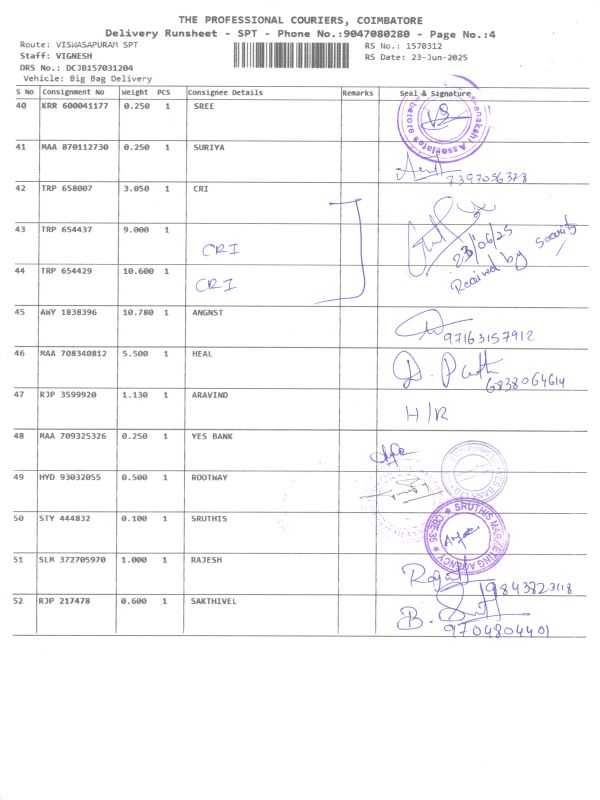 THE PROFESSIONAL COURIERS, COIMBATORE
Delivery Runsheet - SPT - Phone No.:9047080280 - Page No.:4
Route: VISWASAPURAM SPT RS No.: 1570312
Staff: VIGNESH RS Date: 23-Jun-2025
DRS No.: DCJB157031204
Vehicle: Big Bag Delivery
S No Consignment No Weight PCS Consignee Details Remarks Seal & Signature
40 KRR 600041177 0.250 1 SREE
Associates
41 MAA 870112730 0.250 1 SURIYA
7397056378
42 TRP 658007 3.050 1 CRI
43 TRP 654437 9.000 1 CRI
23/06/25
Received by Security
44 TRP 654429 10.600 1 CRI
45 AWY 1838396 10.780 1 ANGNST
97163157912
46 MAA 708340812 5.500 1 HEAL
6838064614
47 RJP 3599920 1.130 1 ARAVIND
H/R
48 MAA 709325326 0.250 1 YES BANK
49 HYD 93032055 0.500 1 ROOTWAY
YES BANK LTD
50 STY 444832 0.100 1 SRUTHIS
SRUTHIS MARKETING AGENCY CBE-35
51 SLM 372705970 1.000 1 RAJESH
9843823118
52 RJP 217478 0.600 1 SAKTHIVEL
9704804401